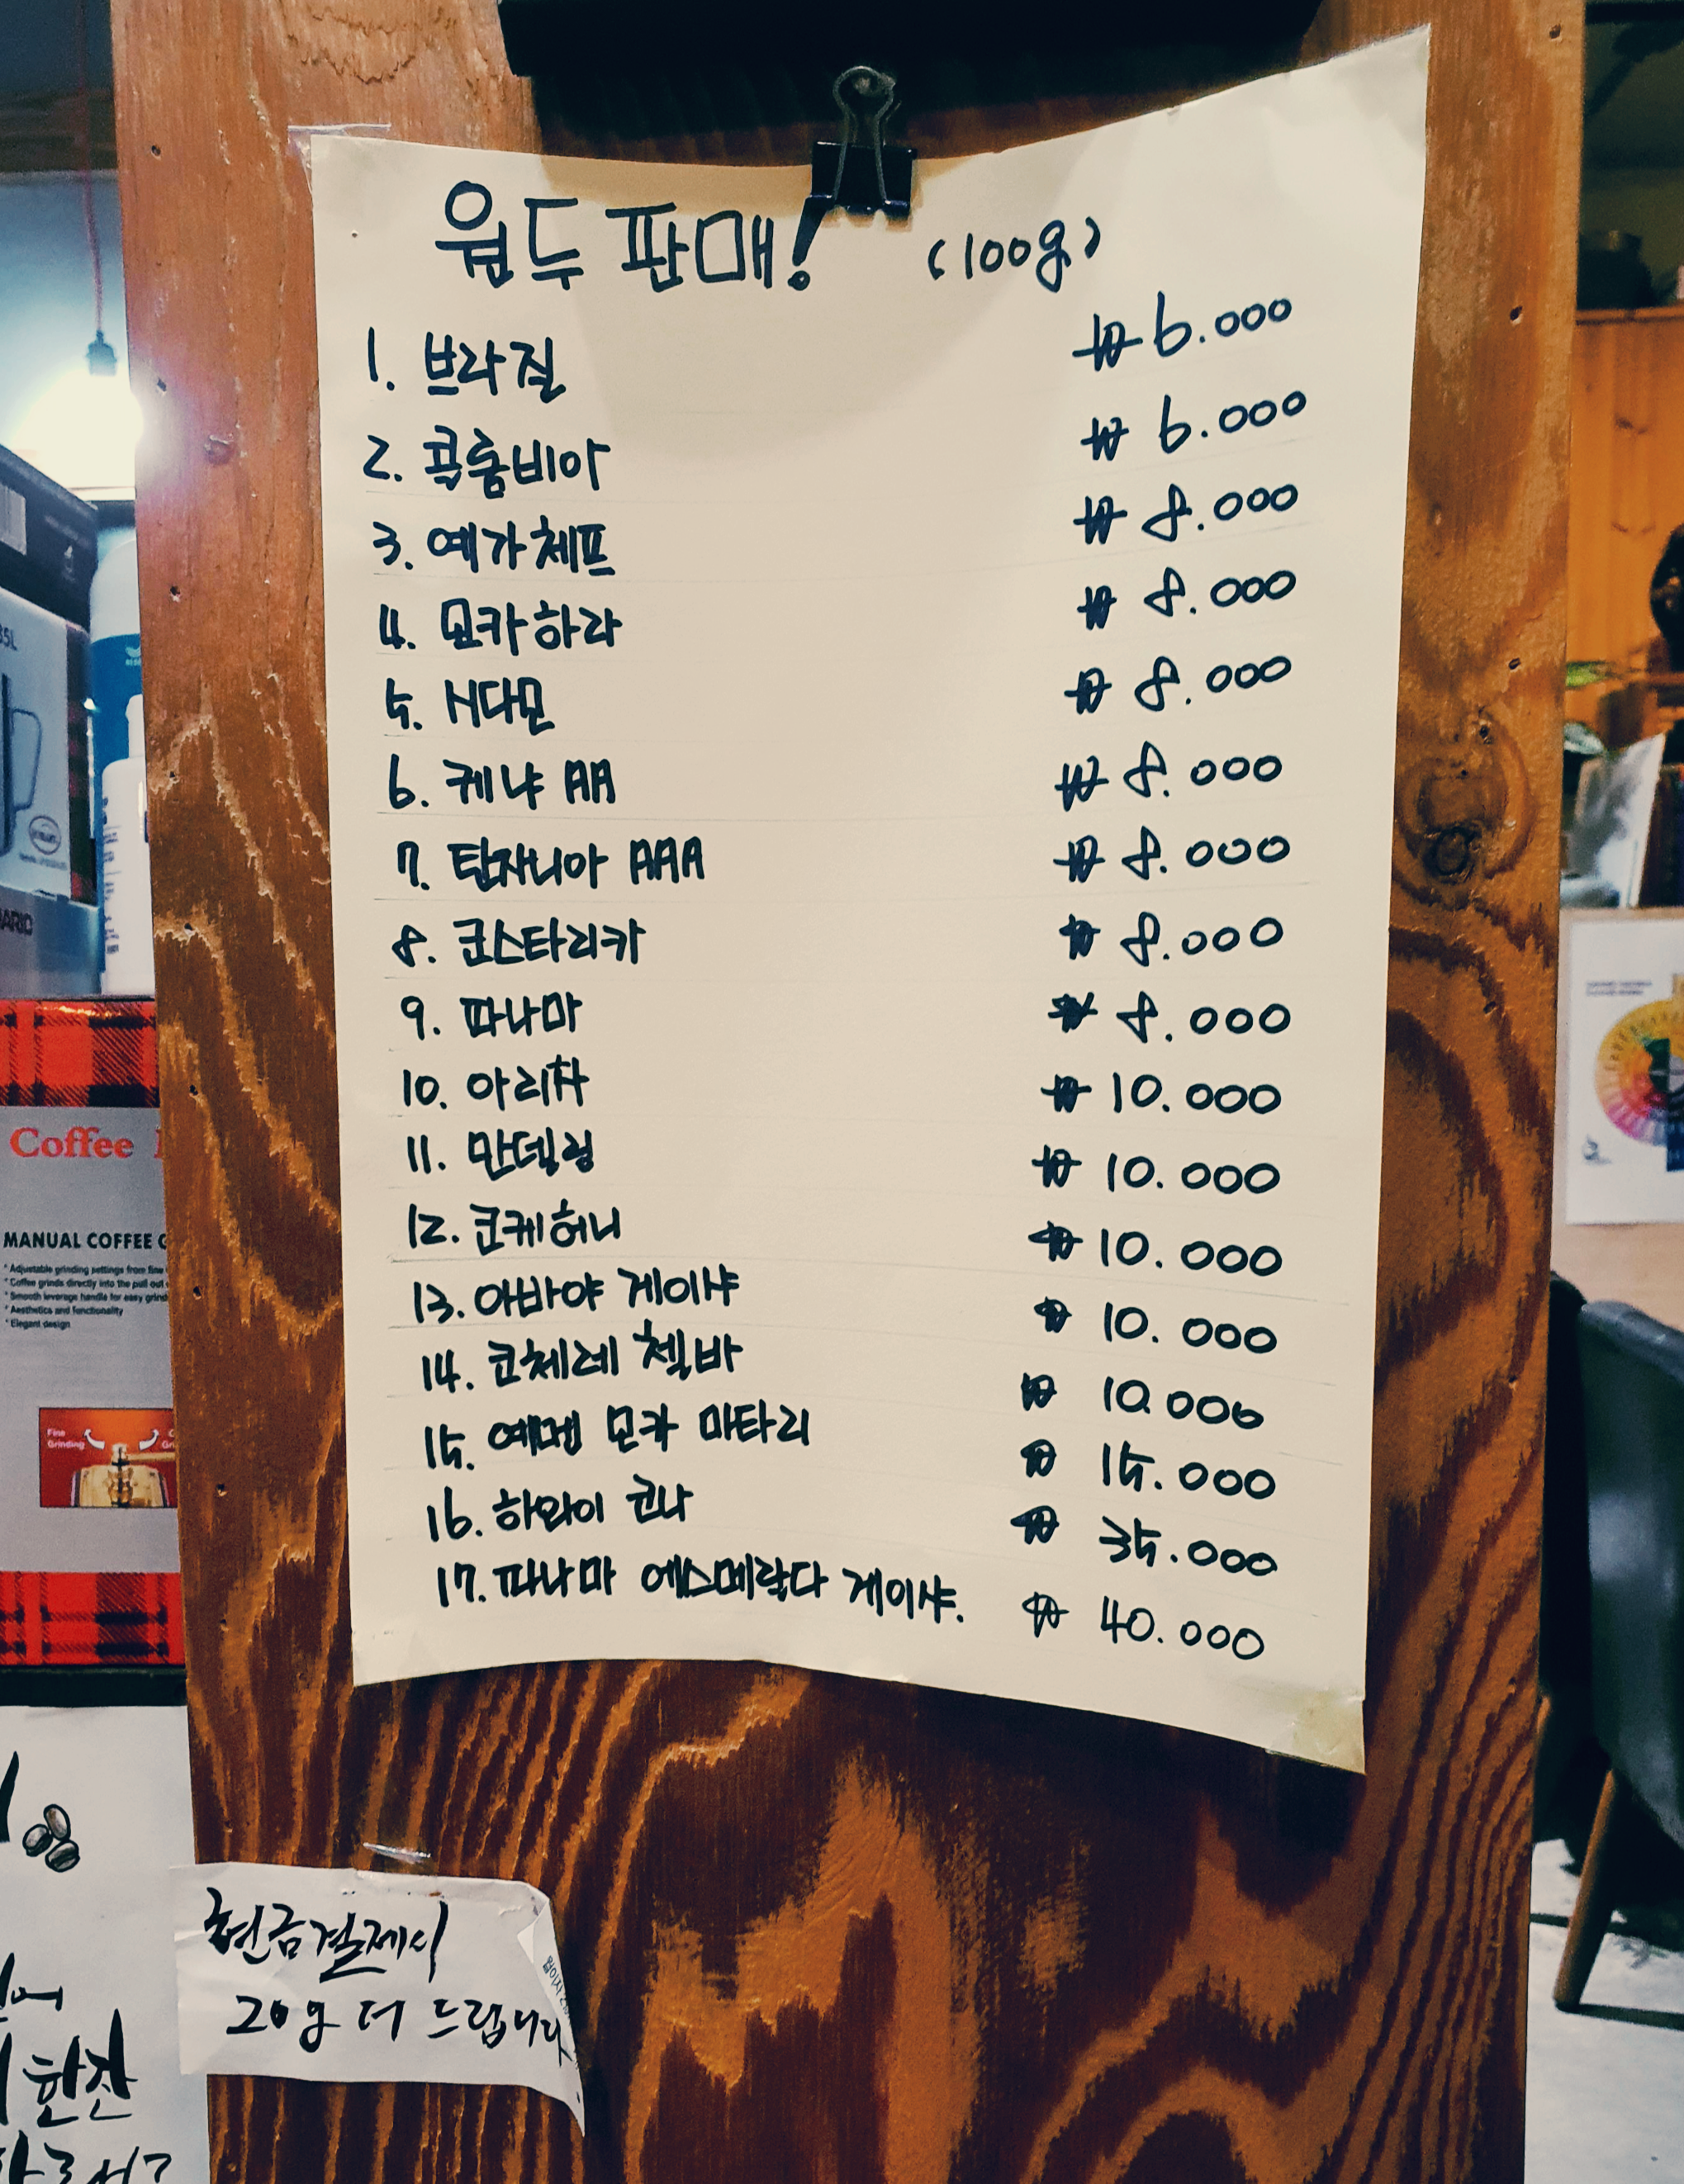 원두판매! (100g)
1. 브라질 ₩6.000
2. 콜롬비아 ₩ 6.000
3. 예가체프 ₩ 8.000
4. 모카하라 ₩ 8.000
5. 시다모 ₩ 8.000
6. 케냐 AA ₩ 8.000
7. 탄자니아 AAA ₩ 8.000
8. 코스타리카 ₩ 8.000
9. 파나마 ₩ 8.000
10. 아리차 ₩ 10.000
11. 만델링 ₩ 10.000
12. 코케허니 ₩ 10.000
13. 아바야 게이샤 ₩ 10.000
14. 코체레 첼바 ₩ 10.000
15. 예멘 모카 마타리 ₩ 15.000
16. 하와이 코나 ₩ 35.000
17. 파나마 에스메랄다 게이샤. ₩ 40.000
현금결제시
20g 더 드립니다
Coffee
MANUAL COFFEE G
* Adjustable grinding settings from fine
* Coffee grinds directly into the pull out
* Smooth leverage handle for easy grind
* Aesthetics and functionality
* Elegant design
Fine
Grinding
한잔